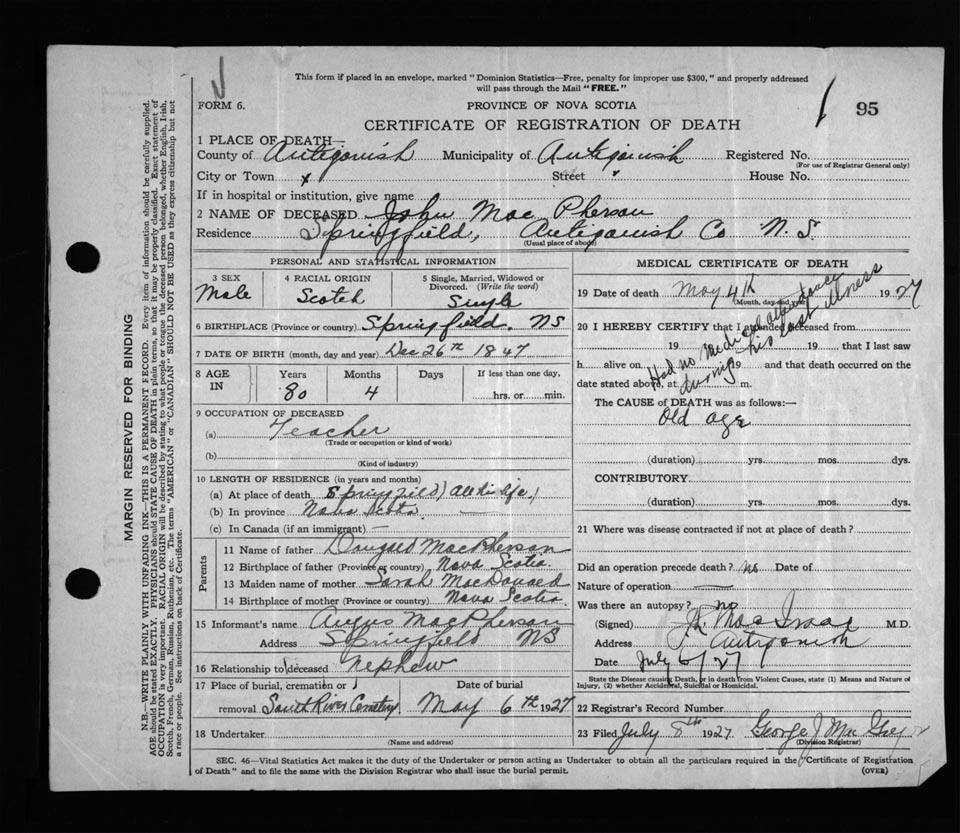 This form if placed in an envelope, marked "Dominion Statistics—Free, penalty for improper use $300," and properly addressed
will pass through the Mail "FREE."
FORM 6.
PROVINCE OF NOVA SCOTIA
95
CERTIFICATE OF REGISTRATION OF DEATH
1 PLACE OF DEATH—
County of Antigonish Municipality of Antigonish Registered No.
(For use of Registrar General only)
City or Town x Street " House No.
If in hospital or institution, give name
2 NAME OF DECEASED John Mac Pherson
Residence Springfield, Antigonish Co N.S.
(Usual place of abode)
PERSONAL AND STATISTICAL INFORMATION
3 SEX
Male
4 RACIAL ORIGIN
Scotch
5 Single, Married, Widowed or
Divorced. (Write the word)
Single
6 BIRTHPLACE (Province or country) Springfield. NS
7 DATE OF BIRTH (month, day and year) Dec 26th 1847
8 AGE IN
Years Months Days If less than one day,
80 4 hrs. or min.
9 OCCUPATION OF DECEASED
(a) Teacher
(Trade or occupation or kind of work)
(b)
(Kind of industry)
10 LENGTH OF RESIDENCE (in years and months)
(a) At place of death Springfield) all his life)
(b) In province Nova Scotia. —
(c) In Canada (if an immigrant) —
Parents
11 Name of father Dougald MacPherson
12 Birthplace of father (Province or country) Nova Scotia.
13 Maiden name of mother Sarah MacDonald
14 Birthplace of mother (Province or country) Nova Scotia.
15 Informant's name Angus MacPherson
Address Springfield NS
16 Relationship to deceased nephew
17 Place of burial, cremation or Date of burial
removal South River Cemetery. May 6th 1927
18 Undertaker
(Name and address)
MEDICAL CERTIFICATE OF DEATH
19 Date of death May 4th 1927
(Month, day and year)
20 I HEREBY CERTIFY that I attended deceased from
19 19 that I last saw
h alive on 19 and that death occurred on the
date stated above, at m.
Had no medical attendance
during his last illness
The CAUSE of DEATH was as follows:—
Old age
(duration) yrs. mos. dys.
CONTRIBUTORY
(duration) yrs. mos. dys.
21 Where was disease contracted if not at place of death?
Did an operation precede death? no Date of
Nature of operation —
Was there an autopsy? no
(Signed) MacIsaac M.D.
Address Antigonish
Date July 6/27
State the Disease causing Death, or in death from Violent Causes, state (1) Means and Nature of
Injury, (2) whether Accidental, Suicidal or Homicidal.
22 Registrar's Record Number
23 Filed July 8th 1927 George J Mac
(Division Registrar)
SEC. 46—Vital Statistics Act makes it the duty of the Undertaker or person acting as Undertaker to obtain all the particulars required in the "Certificate of Registration
of Death" and to file the same with the Division Registrar who shall issue the burial permit.
(OVER)
MARGIN RESERVED FOR BINDING
N.B.—WRITE PLAINLY WITH UNFADING INK—THIS IS A PERMANENT RECORD. Every item of information should be carefully supplied.
AGE should be stated EXACTLY. PHYSICIANS should STATE CAUSE OF DEATH in plain terms, so that it may be properly classified. Exact statement of
OCCUPATION is very important. RACIAL ORIGIN will be described by stating to what people or tongue the deceased person belonged, whether English, Irish,
Scotch, French, German, Russian, Ruthenian, etc. The terms "AMERICAN" or "CANADIAN" SHOULD NOT BE USED as they express citizenship but not
a race or people. See instructions on back of Certificate.